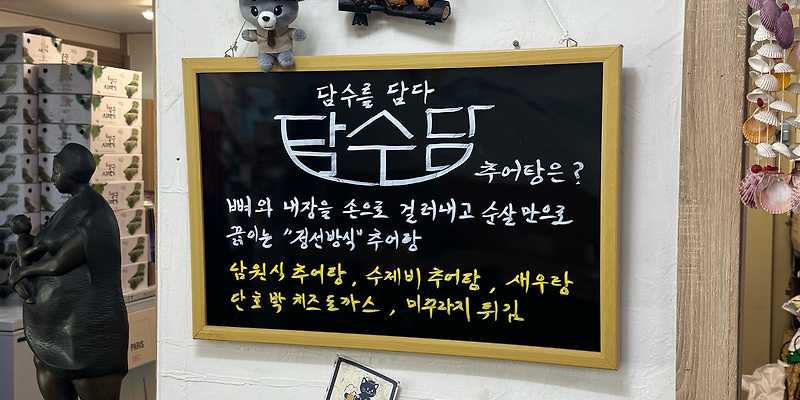 담수를 담다
담수담
추어탕은?
뼈와 내장을 손으로 걸러내고 순살만으로
끓이는 "정선방식" 추어탕
남원식 추어탕, 수제비 추어탕, 새우탕
단호박 치즈돈까스, 미꾸라지 튀김
PARIS